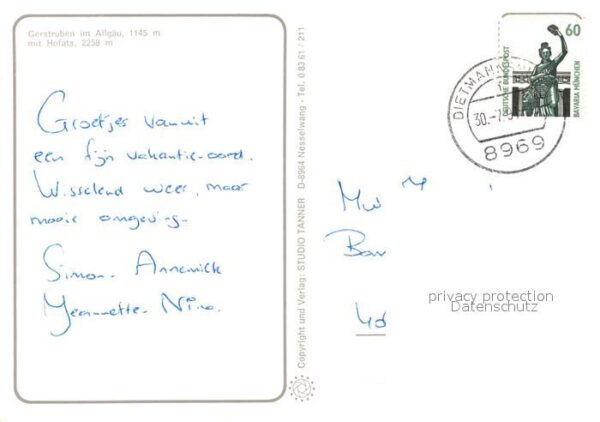 Gerstruben im Allgäu, 1145 m
mit Höfats, 2258 m
Groetjes vanuit
een fijn vakantie-oord.
Wisselend weer, maar
mooie omgeving.
Simon. Annemiek
Jeannette. Nino.
Copyright und Verlag: STUDIO TANNER D-8964 Nesselwang · Tel. 0 83 61 / 211
60
DEUTSCHE BUNDESPOST
BAVARIA MÜNCHEN
DIETMANN
30.-7.
8969
Mw
privacy protection
Datenschutz